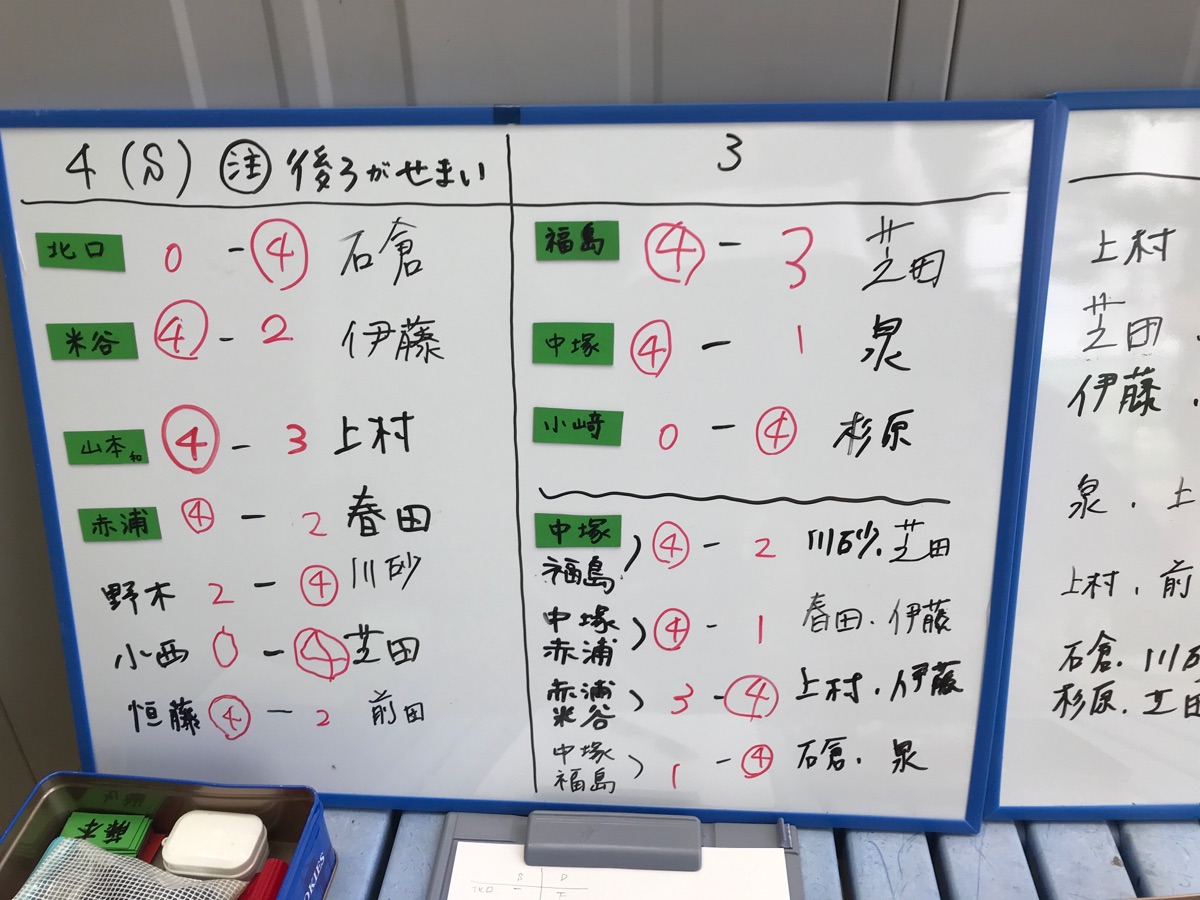 4(S) 注 後ろがせまい
北口 0 - ④ 石倉
米谷 ④ - 2 伊藤
山本和 ④ - 3 上村
赤浦 ④ - 2 春田
野木 2 - ④ 川砂
小西 0 - ④ 芝田
恒藤 ④ - 2 前田
3
福島 ④ - 3 芝田
中塚 ④ - 1 泉
小﨑 0 - ④ 杉原
中塚
福島 ) ④ - 2 川砂.芝田
中塚
赤浦 ) ④ - 1 春田.伊藤
赤浦
米谷 ) 3 - ④ 上村.伊藤
中塚
福島 ) 1 - ④ 石倉.泉
上村
芝田.
伊藤.
泉.上
上村.前
石倉.川砂
杉原.芝田
熊本